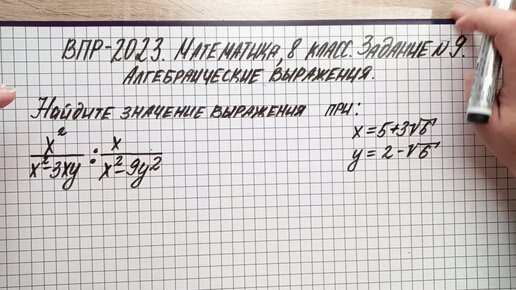 ВПР-2023. Математика, 8 класс. Задание №9.
Алгебраические выражения.
Найдите значение выражения при:
x²/(x²-3xy) : x/(x²-9y²)
x=5+3√6
y=2-√6